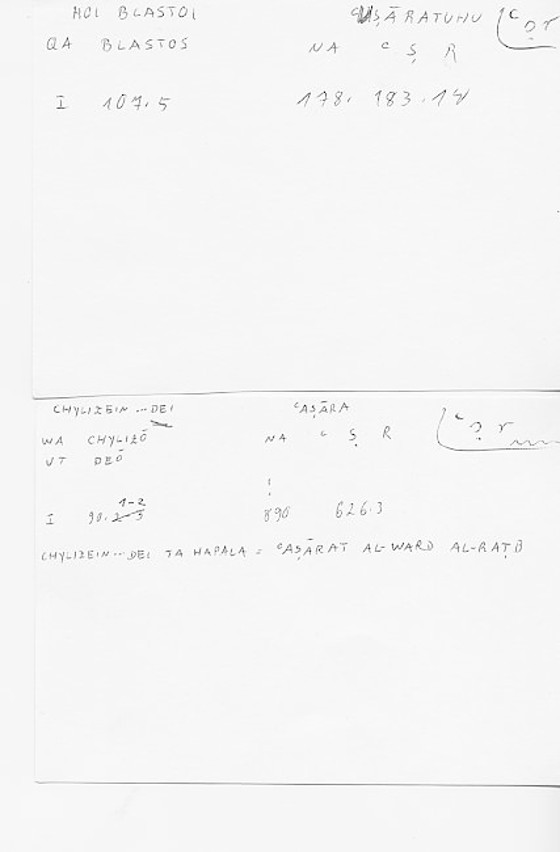 HOI BLASTOI ʿUṢĀRATUHU ʿṣr
QA BLASTOS NA ʿ Ṣ R
I 107.5 178. 183.14
CHYLIZEIN ... DEI ʿAṢĀRA ʿṣr
WA CHYLIZŌ NA ʿ Ṣ R
VT DEŌ
I 90. 1-2 890 626.3
CHYLIZEIN ... DEI TA HAPALA = ʿAṢĀRAT AL-WARD AL-RAṬB